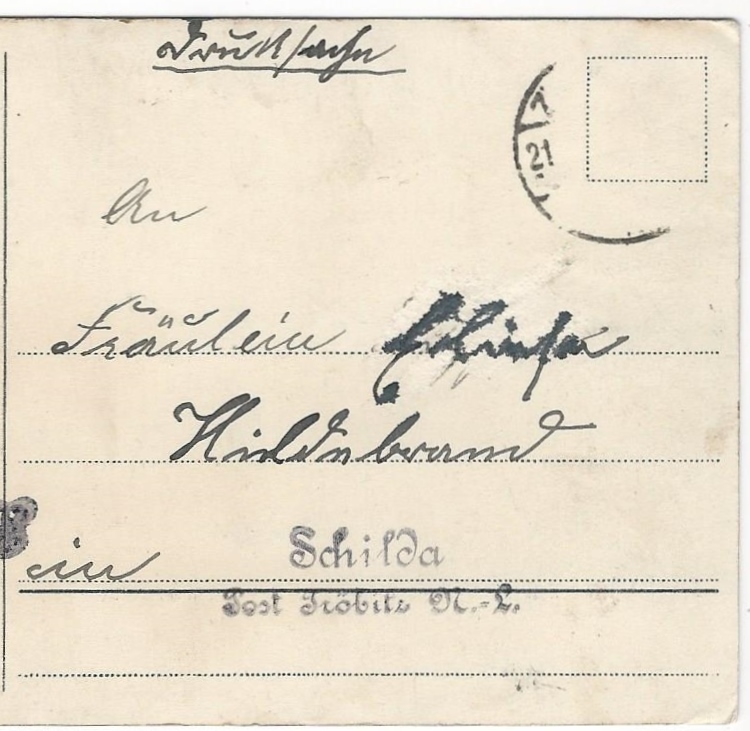 Drucksache
21
An
Fräulein
Hildebrand
in Schilda
Post Tröbitz N.-L.